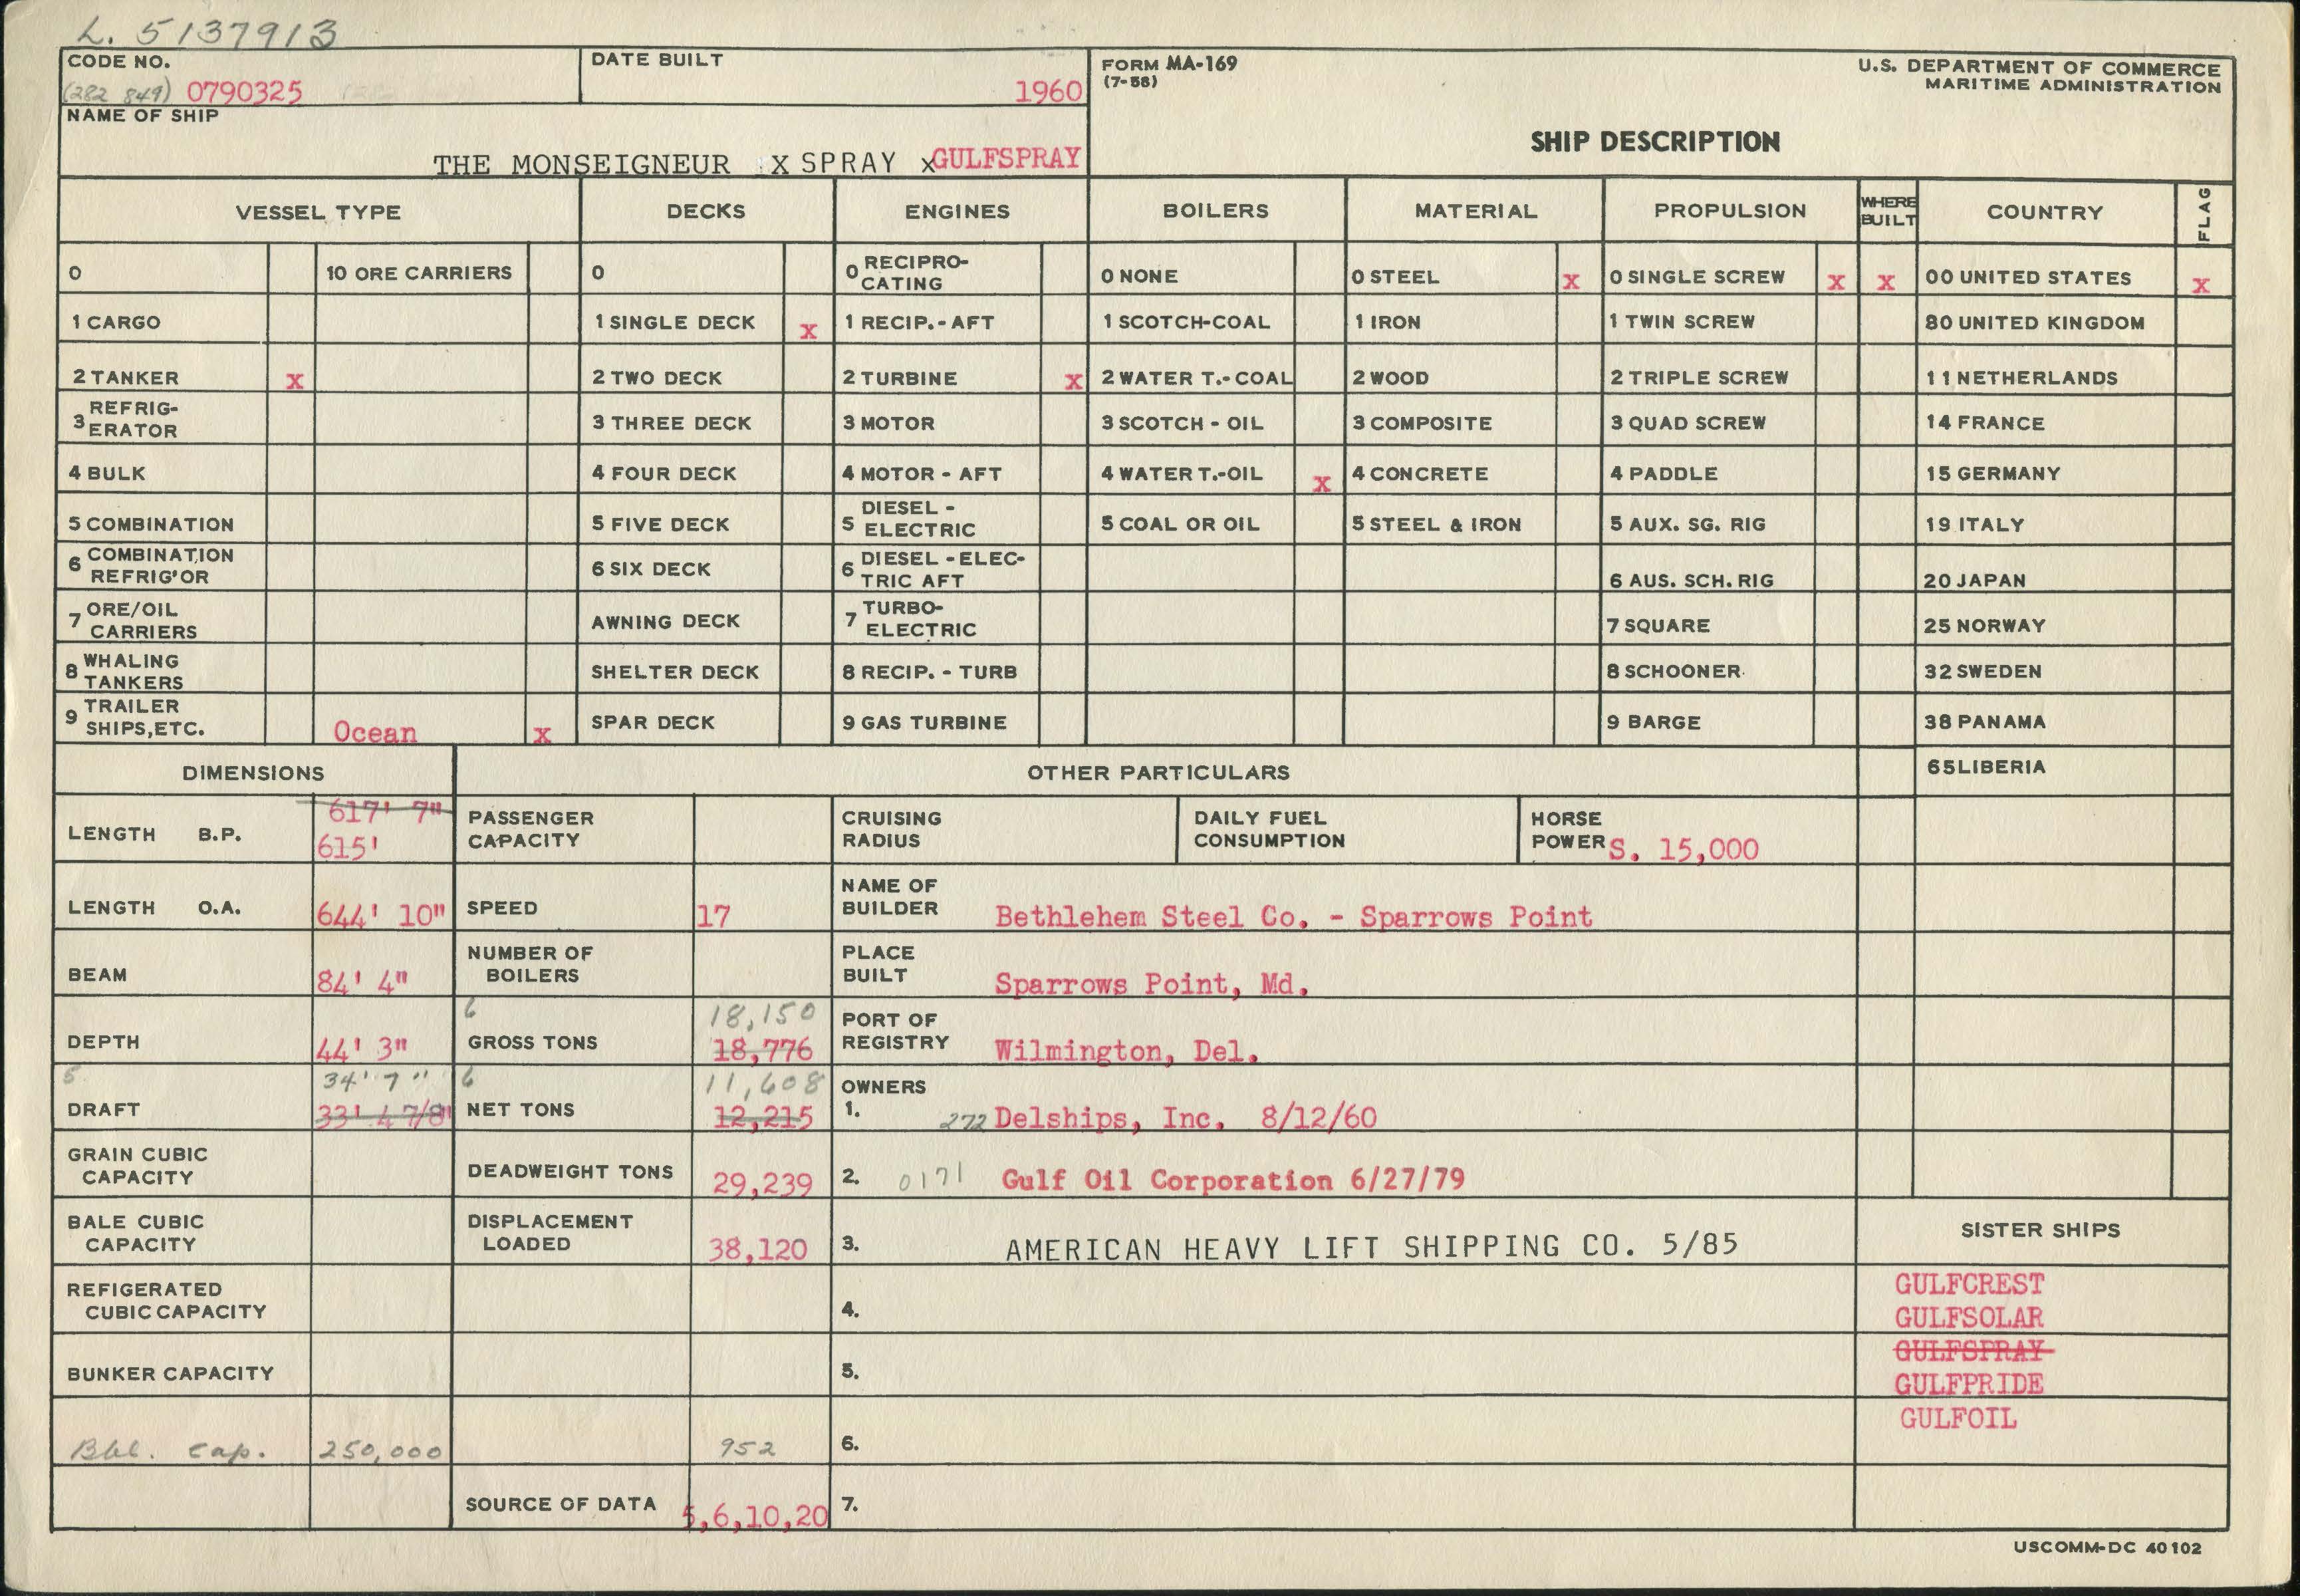 L. 5137913
CODE NO.
(282 849) 0790325
DATE BUILT
1960
FORM MA-169
(7-58)
U.S. DEPARTMENT OF COMMERCE
MARITIME ADMINISTRATION
SHIP DESCRIPTION
NAME OF SHIP
THE MONSEIGNEUR X SPRAY xGULFSPRAY
VESSEL TYPE DECKS ENGINES BOILERS MATERIAL PROPULSION WHERE BUILT COUNTRY FLAG
0 10 ORE CARRIERS 0 0 RECIPRO-CATING 0 NONE 0 STEEL x 0 SINGLE SCREW x x 00 UNITED STATES x
1 CARGO 1 SINGLE DECK x 1 RECIP.-AFT 1 SCOTCH-COAL 1 IRON 1 TWIN SCREW 80 UNITED KINGDOM
2 TANKER x 2 TWO DECK 2 TURBINE x 2 WATER T.-COAL 2 WOOD 2 TRIPLE SCREW 11 NETHERLANDS
3 REFRIG-ERATOR 3 THREE DECK 3 MOTOR 3 SCOTCH - OIL 3 COMPOSITE 3 QUAD SCREW 14 FRANCE
4 BULK 4 FOUR DECK 4 MOTOR - AFT 4 WATER T.-OIL x 4 CONCRETE 4 PADDLE 15 GERMANY
5 COMBINATION 5 FIVE DECK 5 DIESEL - ELECTRIC 5 COAL OR OIL 5 STEEL & IRON 5 AUX. SG. RIG 19 ITALY
6 COMBINATION REFRIG'OR 6 SIX DECK 6 DIESEL - ELEC-TRIC AFT 6 AUS. SCH. RIG 20 JAPAN
7 ORE/OIL CARRIERS AWNING DECK 7 TURBO-ELECTRIC 7 SQUARE 25 NORWAY
8 WHALING TANKERS SHELTER DECK 8 RECIP. - TURB 8 SCHOONER 32 SWEDEN
9 TRAILER SHIPS,ETC. Ocean x SPAR DECK 9 GAS TURBINE 9 BARGE 38 PANAMA
DIMENSIONS OTHER PARTICULARS 65 LIBERIA
LENGTH B.P. 617' 7" 615'
PASSENGER CAPACITY
CRUISING RADIUS
DAILY FUEL CONSUMPTION
HORSE POWER S. 15,000
LENGTH O.A. 644' 10"
SPEED 17
NAME OF BUILDER Bethlehem Steel Co. - Sparrows Point
BEAM 84' 4"
NUMBER OF BOILERS
PLACE BUILT Sparrows Point, Md.
DEPTH 44' 3"
6 GROSS TONS 18,150 18,776
PORT OF REGISTRY Wilmington, Del.
5 DRAFT 34' 7" 33' 4 7/8"
6 NET TONS 11,608 12,215
OWNERS
1. 272 Delships, Inc. 8/12/60
GRAIN CUBIC CAPACITY
DEADWEIGHT TONS 29,239
2. 0171 Gulf Oil Corporation 6/27/79
BALE CUBIC CAPACITY
DISPLACEMENT LOADED 38,120
3. AMERICAN HEAVY LIFT SHIPPING CO. 5/85
SISTER SHIPS
REFIGERATED CUBIC CAPACITY
4.
GULFCREST
GULFSOLAR
BUNKER CAPACITY
5.
GULFSPRAY
GULFPRIDE
Bbl. cap. 250,000
952
6.
GULFOIL
SOURCE OF DATA 5,6,10,20
7.
USCOMM-DC 40102